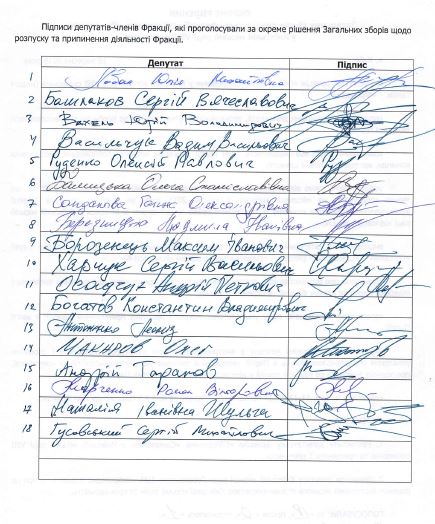 Підписи депутатів-членів Фракції, які проголосували за окреме рішення Загальних зборів щодо
розпуску та припинення діяльності Фракції.
Депутат Підпис
1 Юлія Михайлівна
2 Башлаков Сергій Вячеславович
3 Вахель Юрій Володимирович
4 Васильчук Вадим Васильович
5 Руденко Олексій Павлович
6 Олега Станіславівна
7 Олександрівна
8 Людмила Іванівна
9 Бороденець Максим Іванович
10 Харчук Сергій Васильович
11 Осадчук Андрій Петрович
12 Богатов Константин Владимирович
13 Антоненко Леонід
14 Макаров Олег
15 Андрій Таранов
16 Марченко Роман Вікторович
17 Наталія Іванівна Шульга
18 Гусовський Сергій Михайлович